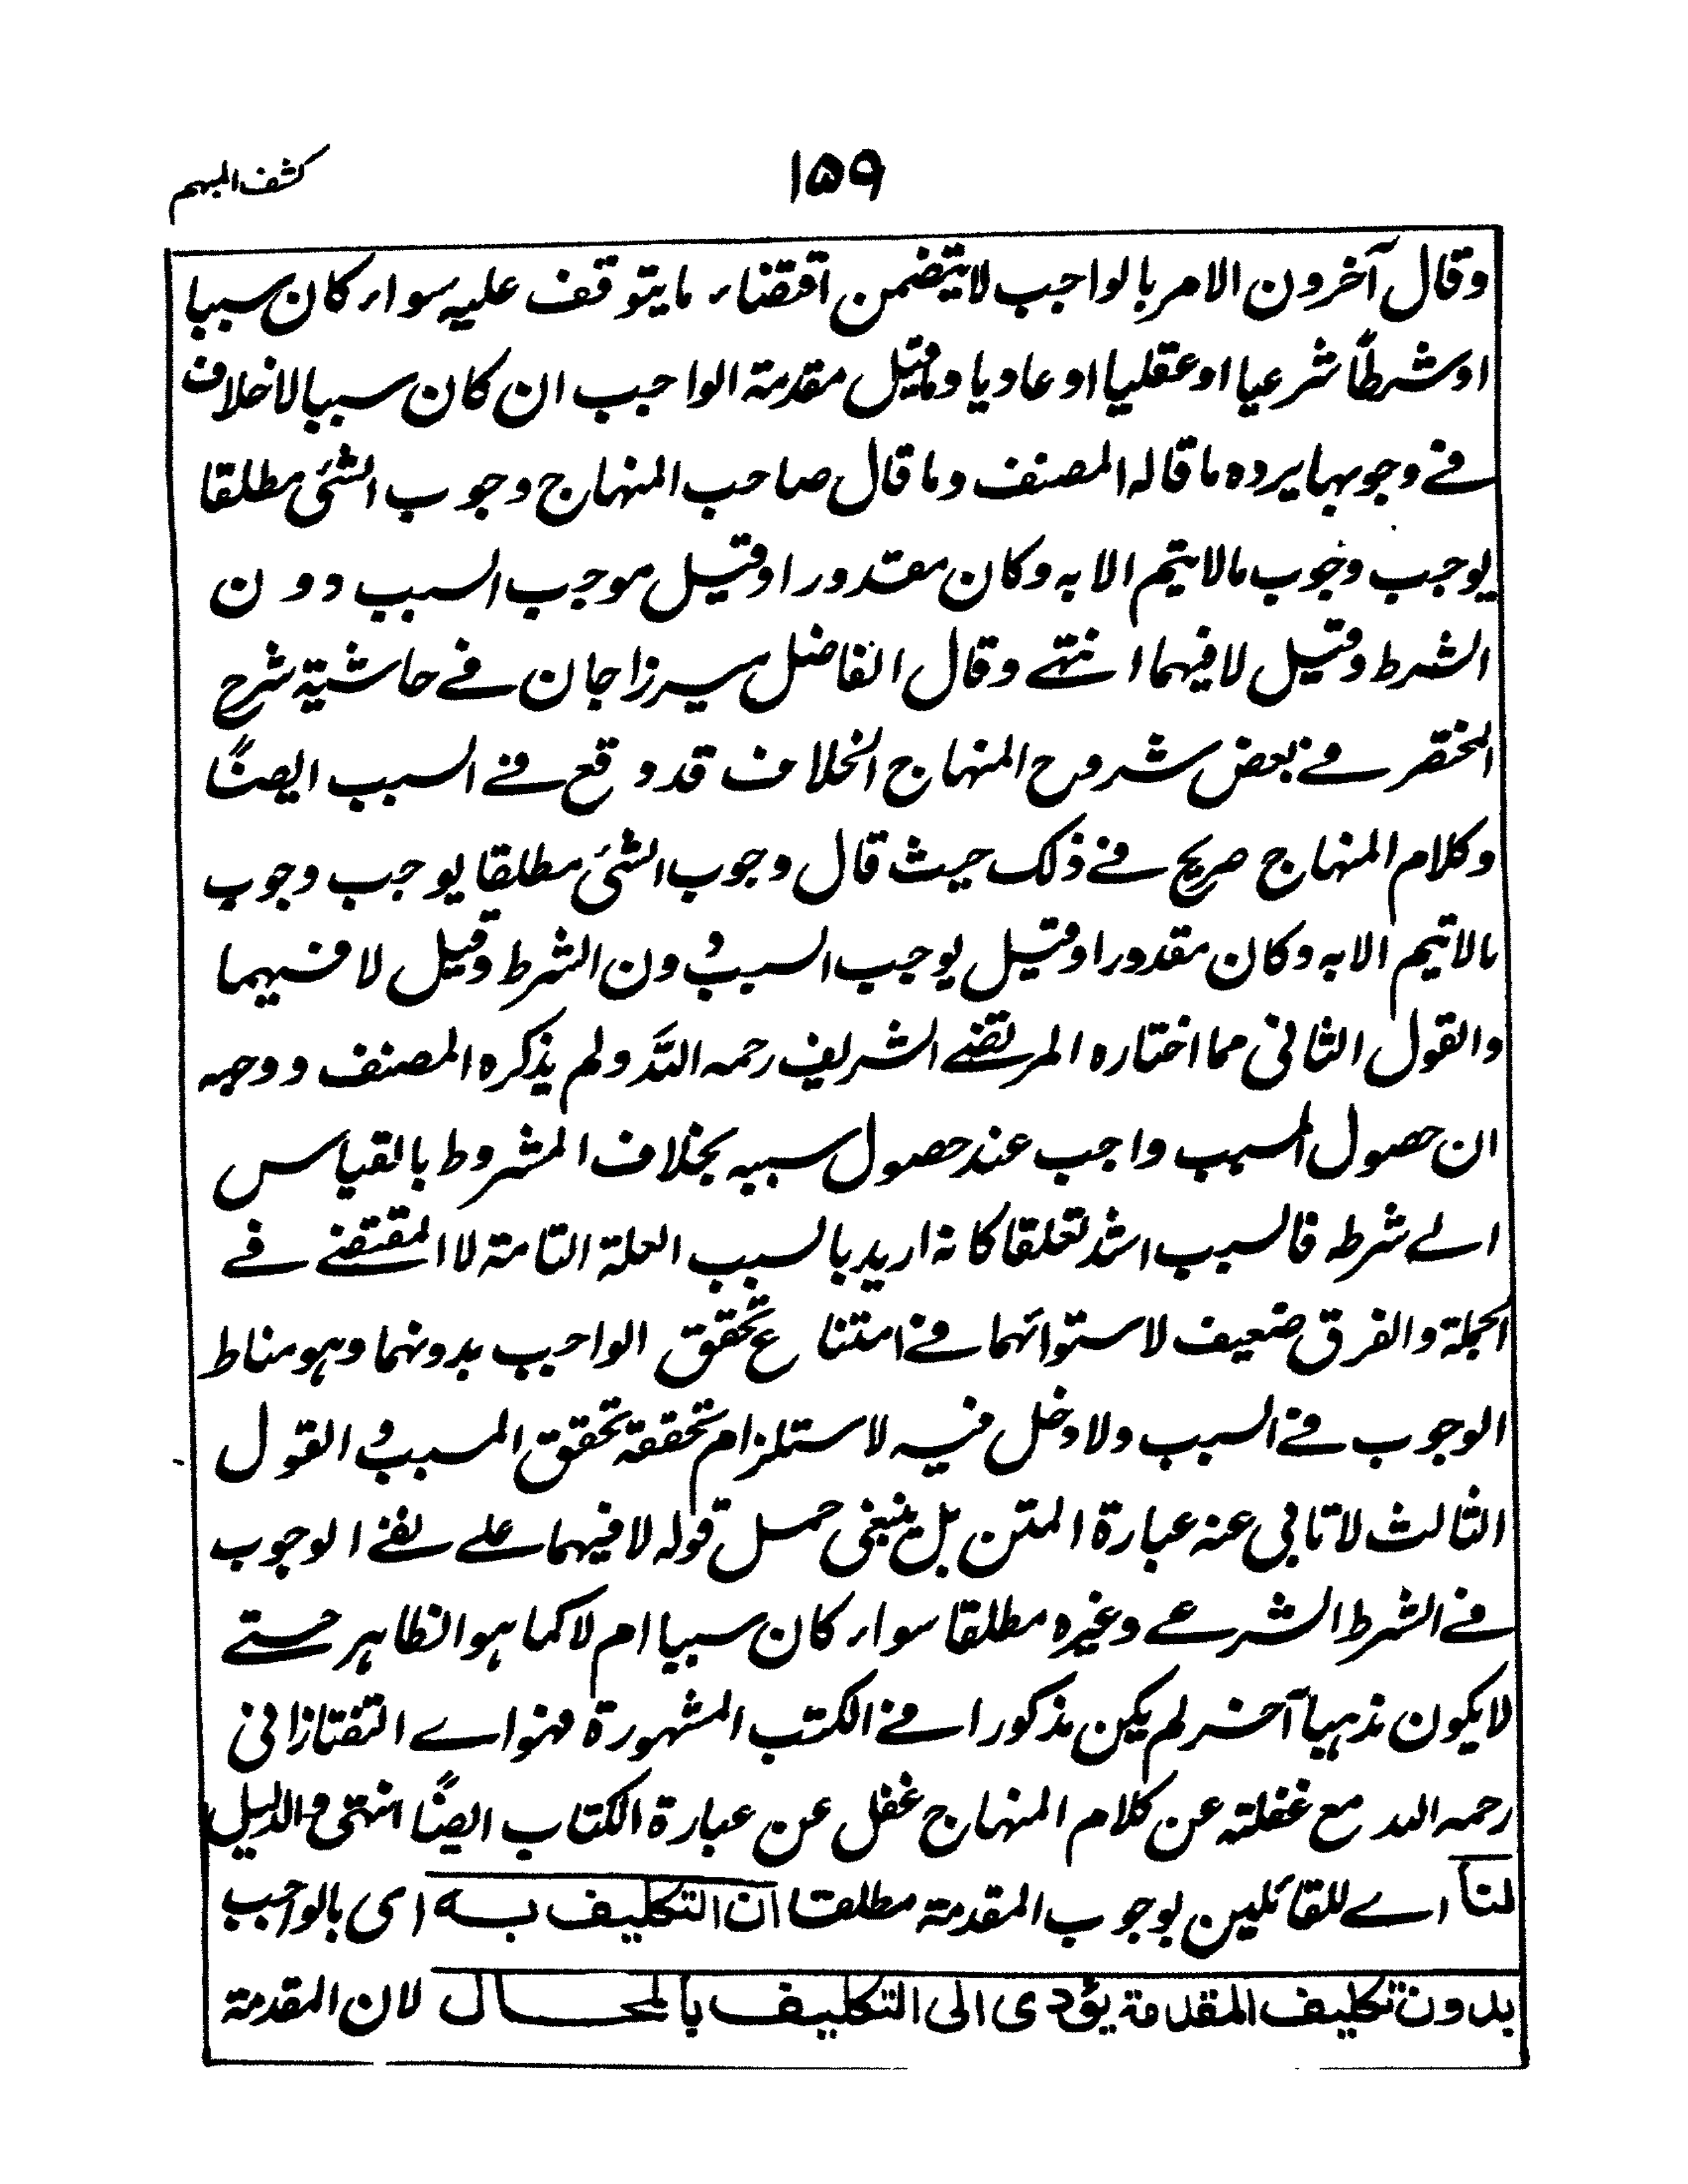 كشف المبهم
١٥٩
وقال آخرون الامر بالواجب لا يتضمن اقتضاء ما يتوقف عليه سواء كان سببا
او شرطًا شرعيا او عقليا او عاديا وما قيل مقدمة الواجب ان كان سببا لا خلاف
في وجوبها يرده ما قاله المصنف وما قال صاحب المنهاج وجوب الشئ مطلقا
يوجب وجوب ما لا يتم الا به وكان مقدورا وقيل موجب السبب دون
الشرط وقيل لا فيهما انتهى وقال الفاضل ميرزا جان في حاشية شرح
المختصر في بعض شروح المنهاج الخلاف قد وقع في السبب ايضًا
وكلام المنهاج صريح في ذلك حيث قال وجوب الشئ مطلقا يوجب وجوب
ما لا يتم الا به وكان مقدورا وقيل يوجب السبب دون الشرط وقيل لا فيهما
والقول الثاني مما اختاره المرتضى الشريف رحمه الله ولم يذكره المصنف ووجهه
ان حصول المسبب واجب عند حصول سببه بخلاف المشروط بالقياس
الى شرطه فالسبب اشد تعلقا كانه اريد بالسبب العلة التامة لا المقتضى في
الجملة والفرق ضعيف لاستوائهما في امتناع تحقق الواجب بدونهما وهو مناط
الوجوب في السبب ولا دخل فيه لاستلزام تحققه تحقق المسبب والقول
الثالث لا تابى عنه عبارة المتن بل ينبغي حمل قوله لا فيهما على نفي الوجوب
في الشرط الشرعي وغيره مطلقا سواء كان سببا ام لا كما هو الظاهر حتى
لا يكون مذهبا آخر لم يكن مذكورا في الكتب المشهورة فهو اي التفتازاني
رحمه الله مع غفلته عن كلام المنهاج غفل عن عبارة الكتاب ايضًا انتهى والدليل
لنا اي للقائلين بوجوب المقدمة مطلقا ان التكليف به اي بالواجب
بدون تكليف المقدمة يؤدي الى التكليف بالمحال لان المقدمة